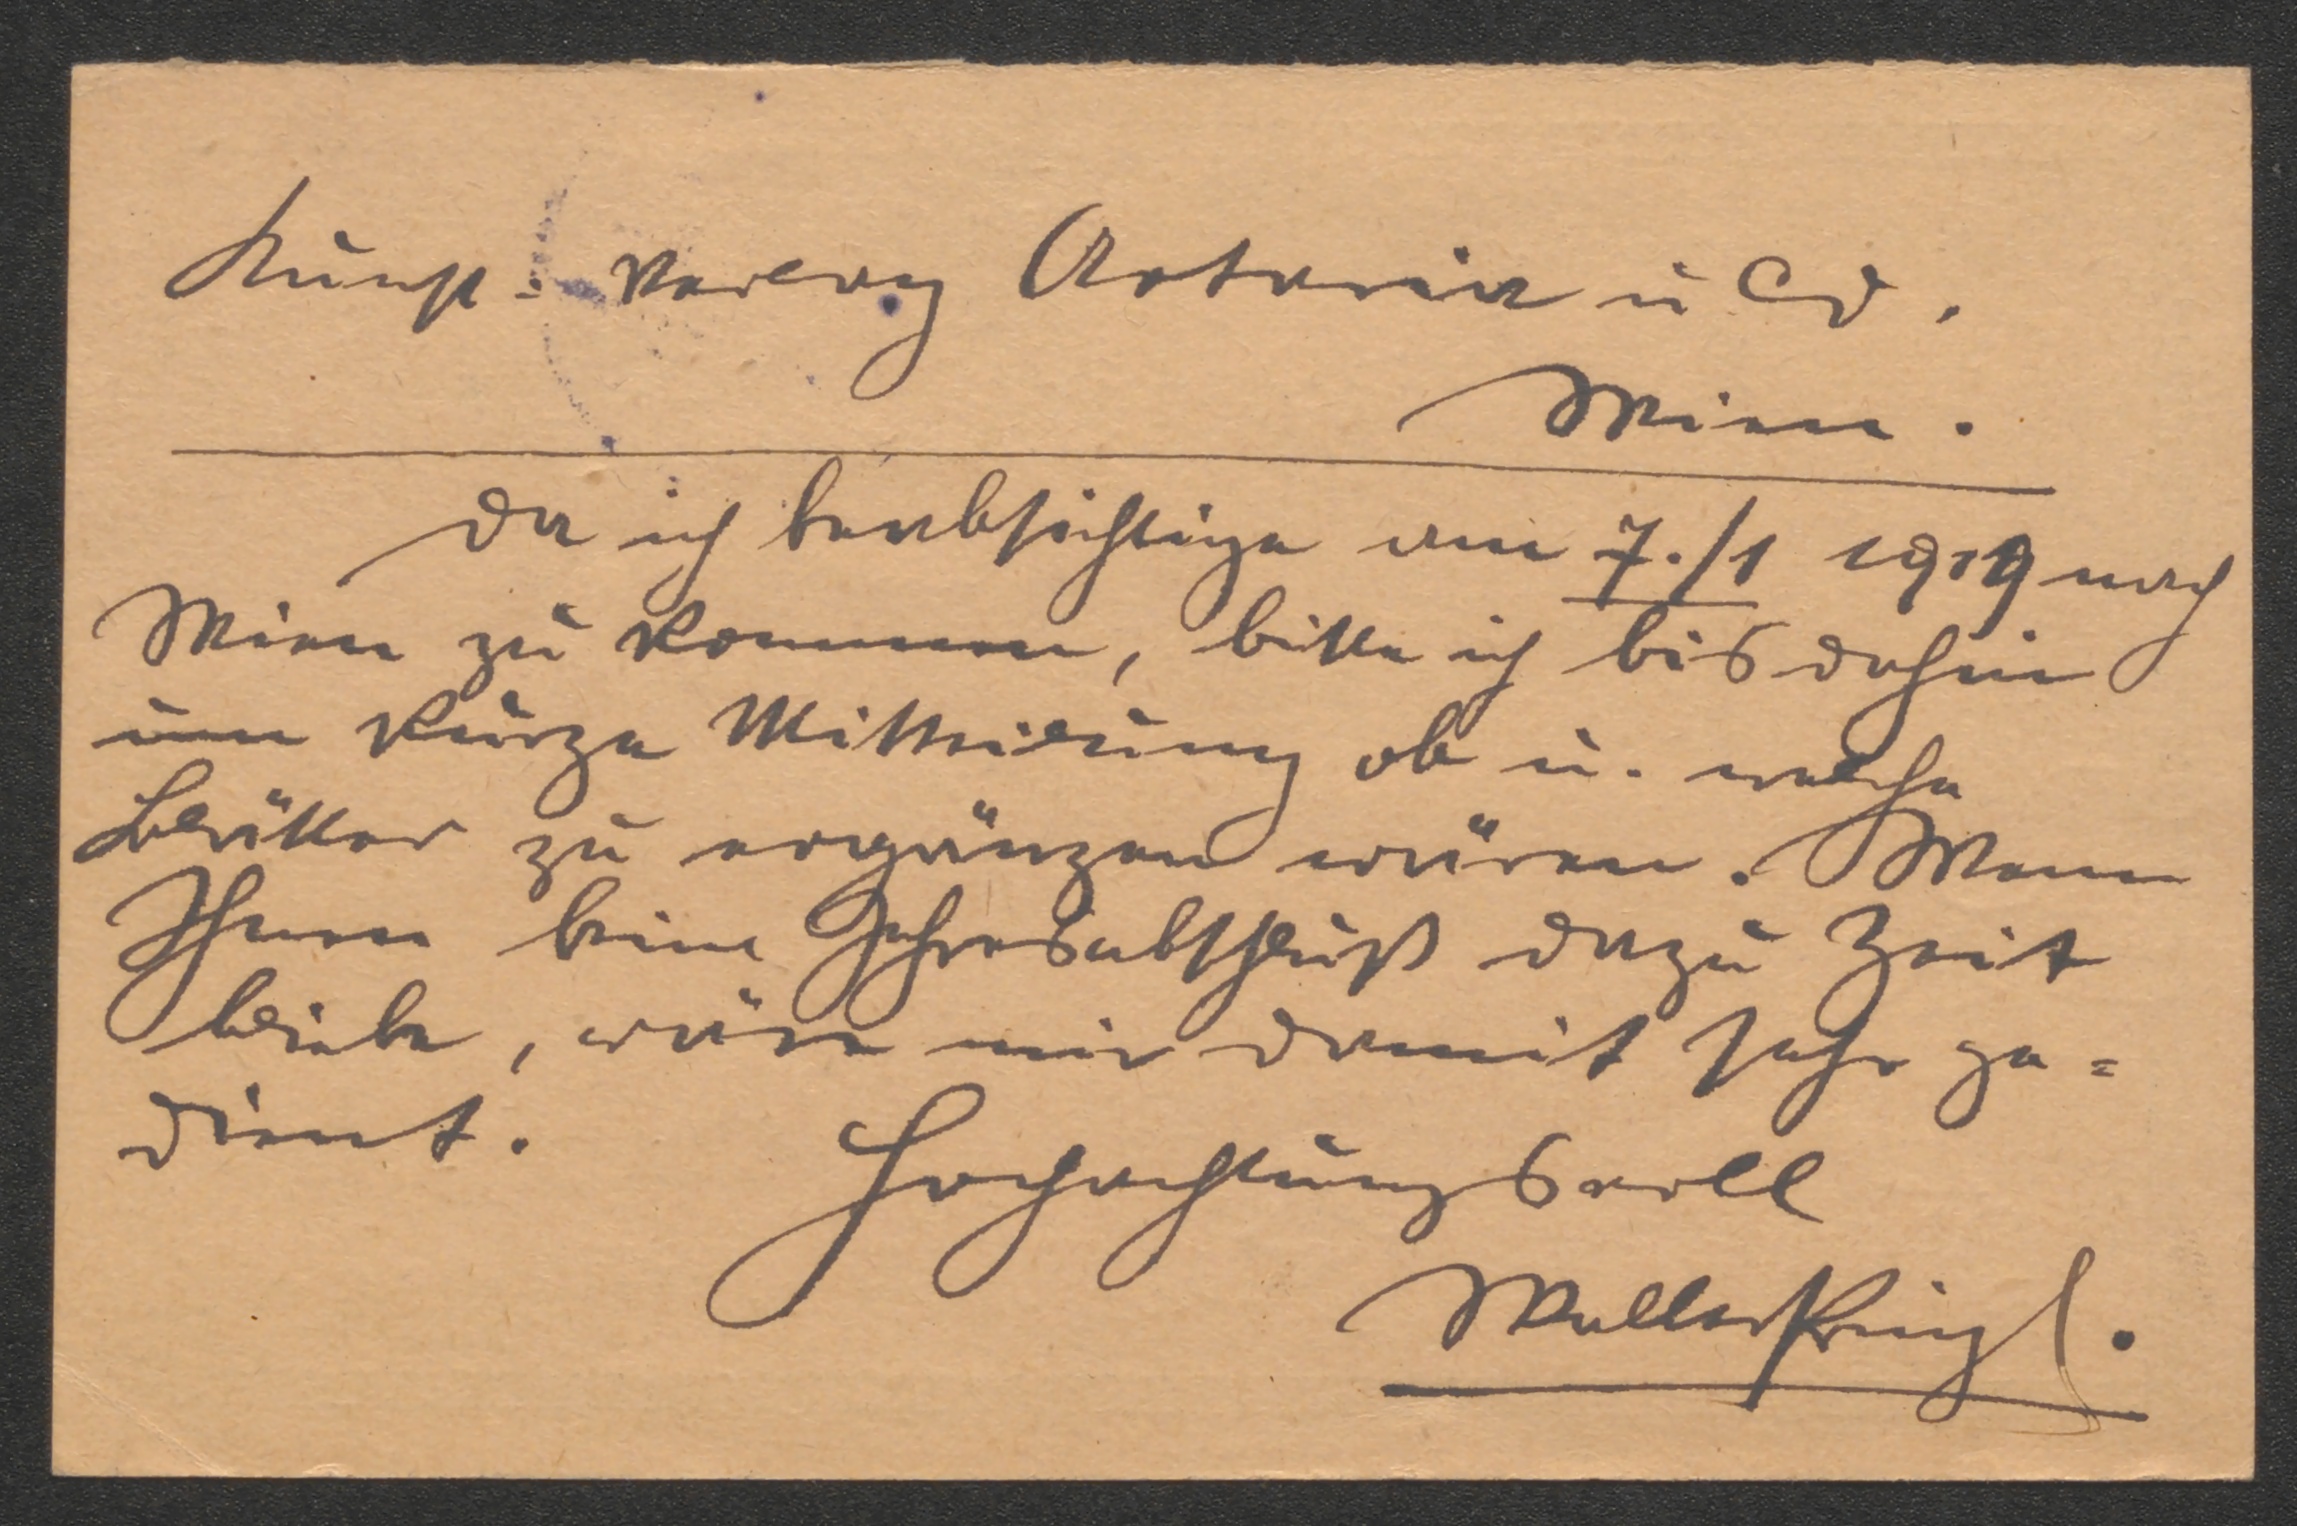 Kunst-Verlag Artaria u Co.
Wien.
Da ich beabsichtige am 7./1 1919 nach
Wien zu kommen, bitte ich bis dahin
um kurze Mitteilung ob u. welche
Blätter zu ergänzen wären. Wenn
Ihnen beim Jahresabschluß dazu Zeit
bliebe, wäre mir damit sehr ge=
dient.
Hochachtungsvoll